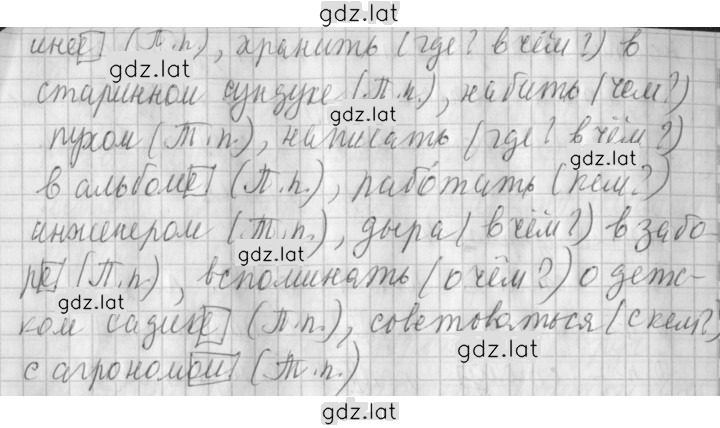 gdz.lat
инее (П.п.), хранить (где? в чём?) в
gdz.lat
старинном сундуке (П.п.), набить (чем?)
gdz.lat
пухом (Т.п.), написать (где? в чём?)
gdz.lat
в альбоме (П.п.), работать (кем?)
инженером (Т.п.), дыра (в чём?) в забо-
gdz.lat
ре (П.п.), вспоминать (о чём?) о детс-
gdz.lat
ком садике (П.п.), советоваться (с кем?)
gdz.lat
с агрономом (Т.п.)
gdz.lat